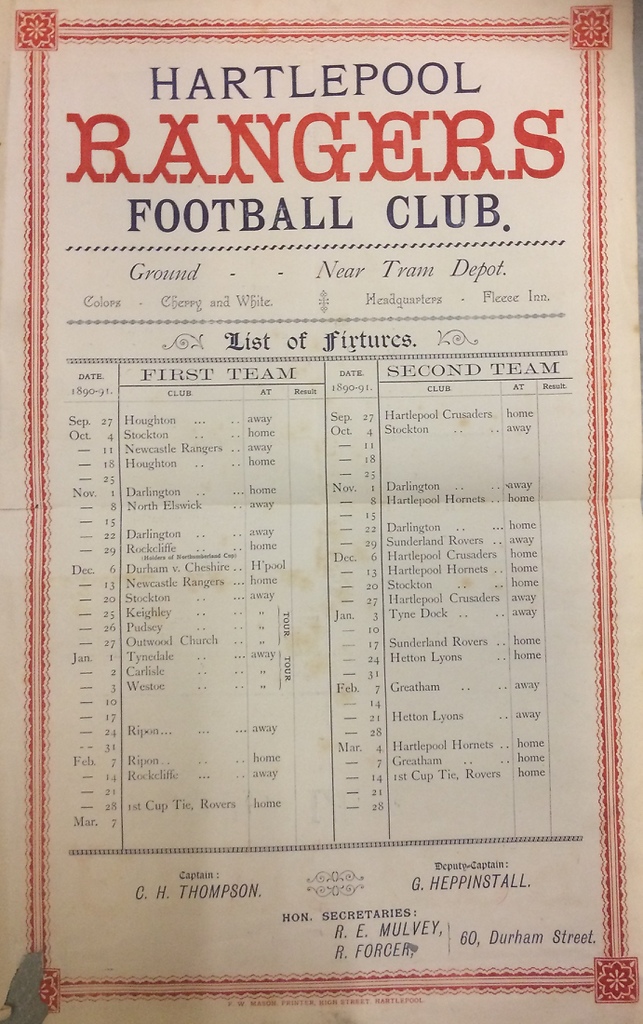 HARTLEPOOL
RANGERS
FOOTBALL CLUB.
Ground - - Near Tram Depot.
Colors - Cherry and White. Headquarters - Fleece Inn.
List of Fixtures.
DATE. 1890-91. FIRST TEAM
CLUB. AT Result
Sep. 27 Houghton ... .. away
Oct. 4 Stockton .. .. home
— 11 Newcastle Rangers .. away
— 18 Houghton .. .. home
— 25
Nov. 1 Darlington .. ... home
— 8 North Elswick .. away
— 15
— 22 Darlington .. .. away
— 29 Rockcliffe .. .. home
(Holders of Northumberland Cup)
Dec. 6 Durham v. Cheshire .. H'pool
— 13 Newcastle Rangers ... home
— 20 Stockton .. ... away
— 25 Keighley .. .. „
— 26 Pudsey .. .. „
— 27 Outwood Church .. „
TOUR
Jan. 1 Tynedale .. ... away
— 2 Carlisle .. .. „
— 3 Westoe .. .. „
TOUR
— 10
— 17
— 24 Ripon... ... ... away
-- 31
Feb. 7 Ripon .. .. .. home
— 14 Rockcliffe ... .. away
— 21
— 28 1st Cup Tie, Rovers home
Mar. 7
DATE. 1890-91. SECOND TEAM
CLUB. AT Result.
Sep. 27 Hartlepool Crusaders home
Oct. 4 Stockton .. .. away
— 11
— 18
— 25
Nov. 1 Darlington .. .. away
— 8 Hartlepool Hornets .. home
— 15
— 22 Darlington .. ... home
— 29 Sunderland Rovers .. away
Dec. 6 Hartlepool Crusaders home
— 13 Hartlepool Hornets .. home
— 20 Stockton .. .. home
— 27 Hartlepool Crusaders away
Jan. 3 Tyne Dock .. .. away
— 10
— 17 Sunderland Rovers .. home
— 24 Hetton Lyons .. home
— 31
Feb. 7 Greatham .. .. away
— 14
— 21 Hetton Lyons .. away
— 28
Mar. 4 Hartlepool Hornets .. home
— 7 Greatham .. .. home
— 14 1st Cup Tie, Rovers home
— 21
— 28
Captain:
C. H. THOMPSON.
Deputy-Captain:
G. HEPPINSTALL.
HON. SECRETARIES:
R. E. MULVEY,
R. FORCER,
60, Durham Street.
F. W. MASON, PRINTER, HIGH STREET, HARTLEPOOL.